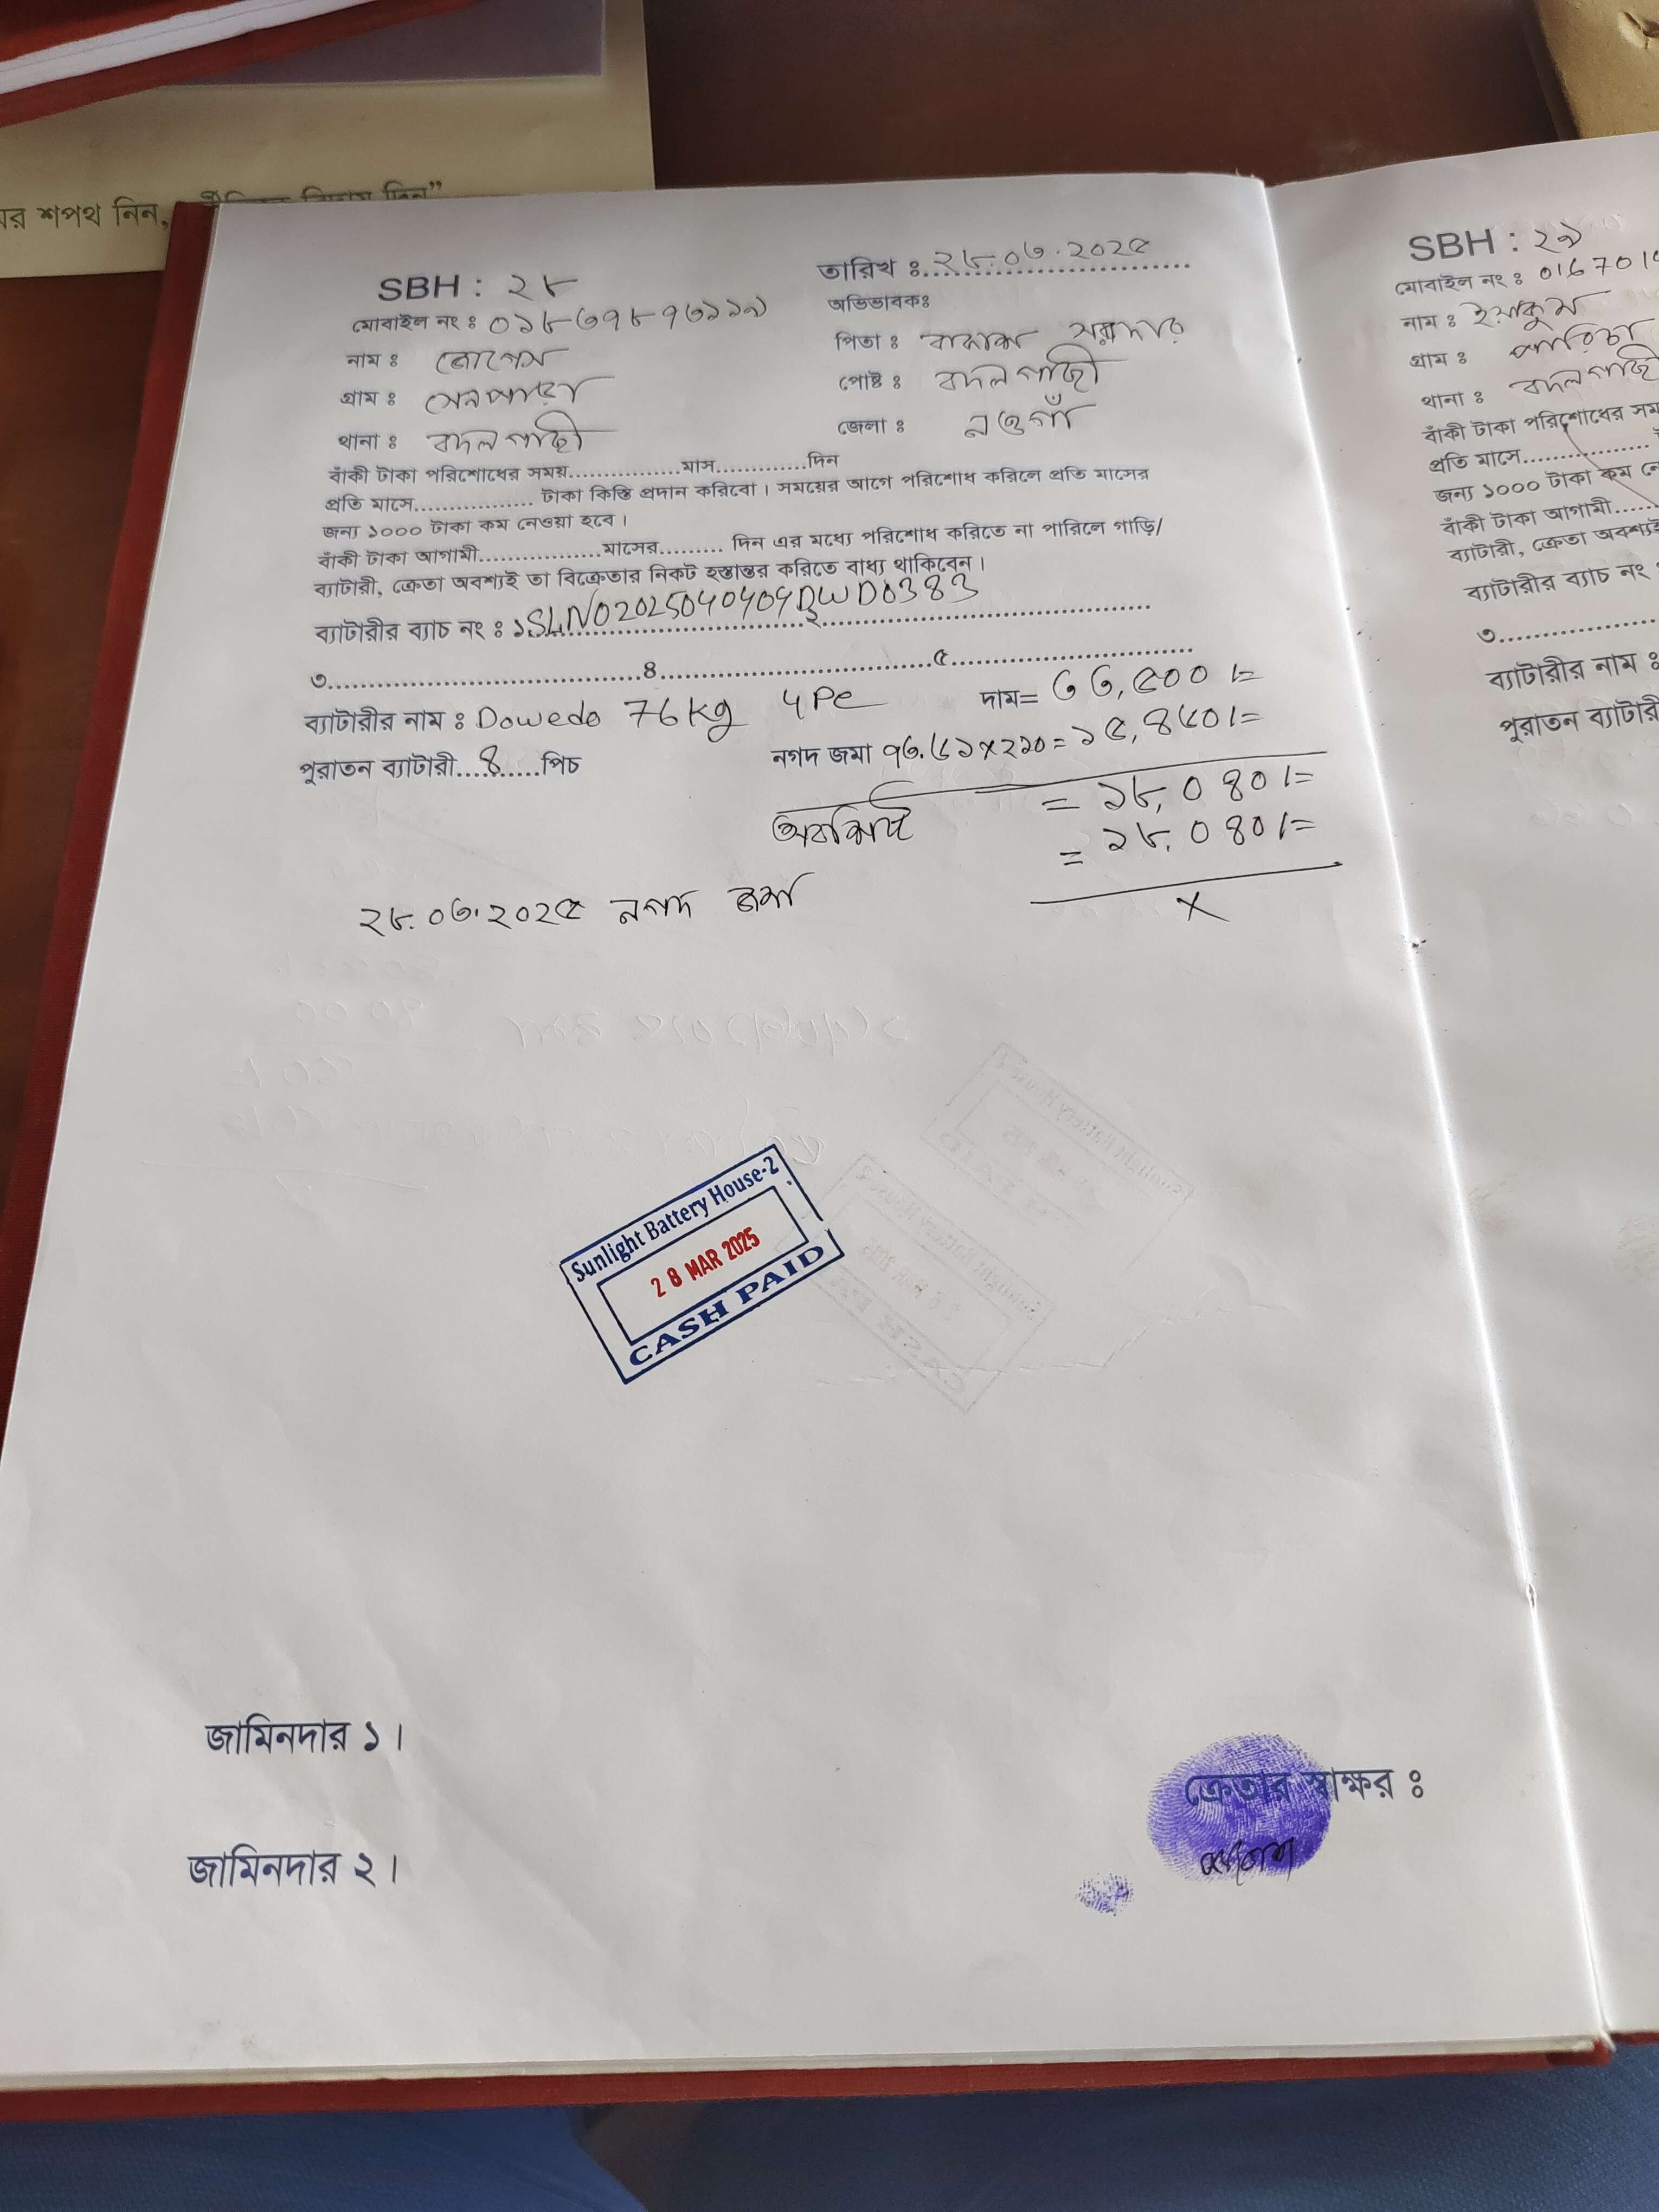 শপথ নিন,
SBH : ২৮
তারিখ ঃ ২৮.০৩.২০২৫
মোবাইল নং ঃ ০১৮৩৭৮৭৩১১৯
অভিভাবকঃ
নাম ঃ
পিতা ঃ সরদার
গ্রাম ঃ সেনপাড়া
পোষ্ট ঃ বদলগাছী
থানা ঃ বদলগাছী
জেলা ঃ নওগাঁ
বাঁকী টাকা পরিশোধের সময়................মাস.............দিন
প্রতি মাসে................. টাকা কিস্তি প্রদান করিবো। সময়ের আগে পরিশোধ করিলে প্রতি মাসের
জন্য ১০০০ টাকা কম নেওয়া হবে।
বাঁকী টাকা আগামী.................মাসের......... দিন এর মধ্যে পরিশোধ করিতে না পারিলে গাড়ি/
ব্যাটারী, ক্রেতা অবশ্যই তা বিক্রেতার নিকট হস্তান্তর করিতে বাধ্য থাকিবেন।
ব্যাটারীর ব্যাচ নং ঃ ১ ২
৩ ৪ ৫
ব্যাটারীর নাম ঃ Dowedo 76kg 4Pc দাম= ৩৩,৫০০/=
পুরাতন ব্যাটারী....৪......পিচ
নগদ জমা ৭৩.৬১×২১০=১৫,৪৬০/=
= ১৮,০৪০/=
= ১৮,০৪০/=
২৮.০৩.২০২৫ নগদ জমা
x
Sunlight Battery House-2
28 MAR 2025
CASH PAID
জামিনদার ১।
ক্রেতার স্বাক্ষর ঃ
জামিনদার ২।
SBH : ২৯
মোবাইল নং ঃ
নাম ঃ
গ্রাম ঃ
থানা ঃ বদলগাছী
বাঁকী টাকা পরিশোধের
প্রতি মাসে
জন্য ১০০০ টাকা কম
বাঁকী টাকা আগামী
ব্যাটারী, ক্রেতা
ব্যাটারীর ব্যাচ নং
৩
ব্যাটারীর নাম ঃ
পুরাতন